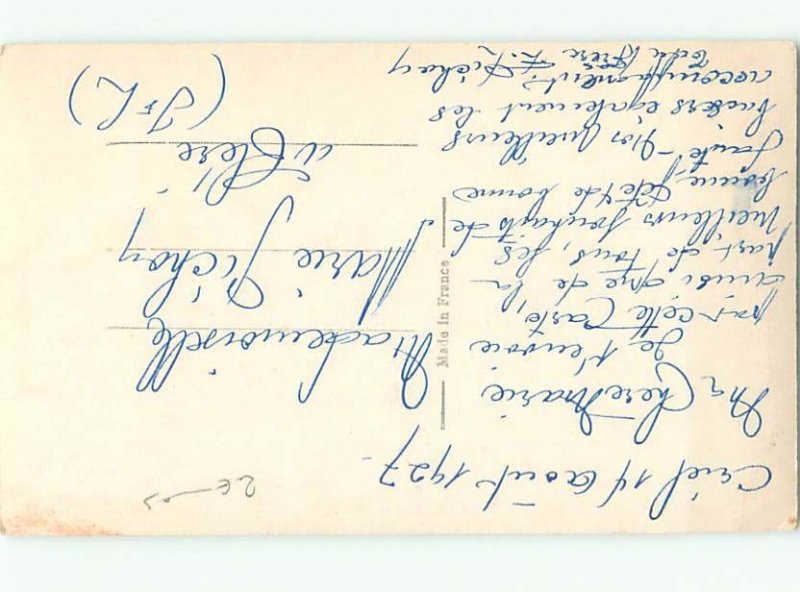 Criel 14 Août 1927.
Ma Chère Marie
Je t'envoie
par cette Carte,
ainsi que de la
part de tous, ses
Meilleurs Souhaits de
bonne fête & de bonne
Santé - Nos Meilleurs
baisers également les
accompagnent.
Ton frère
Pichoy
Made in France
Mademoiselle
Marie Pichoy
à Cléré
(I & L)
2€